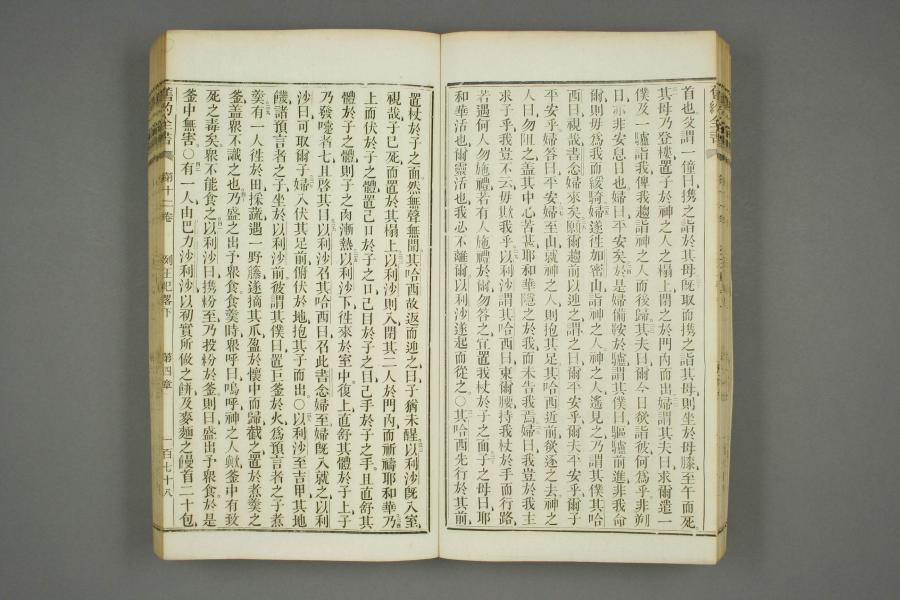 首也父謂一僮曰攜之詣於其母既取而攜之詣其母則坐於母膝至午而死
其母乃登樓置子於神之人之榻上閉之於門內而出婦謂其夫曰求爾遣一
僕及一驢詣我俾我趨詣神之人而後歸其夫曰爾今日欲詣彼何爲乎非朔
日亦非安息日也婦曰平安矣於是婦備鞍於驢謂其僕曰驅驢前進非我命
爾則毋爲我而緩騎婦遂徃如密山詣神之人神之人遙見之乃謂其僕其哈
西曰視哉書念婦來矣願爾趨前以迎之謂之曰爾平安乎爾夫平安乎爾子
平安乎婦答曰平安婦至山就神之人則抱其足其哈西近前欲逐之去神之
人曰勿阻之蓋其中心苦甚耶和華隱之於我而未告我焉婦曰我豈於我主
求子乎我豈不云毋欺我乎以利沙謂其哈西曰束爾腰持我杖於手而行路
若遇何人勿施禮若有人施禮於爾勿答之宜置我杖於子之面子之母曰耶
和華活也爾靈活也我必不離爾以利沙遂起而從之〇其哈西先行於其前
舊約全書 第十二卷 列王紀畧下 第四章 一百七十八
置杖於子之面然無聲無聞其哈西故返而迎之曰子猶未醒以利沙既入室
視哉子已死而置於其榻上以利沙則入閉其二人於門內而祈禱耶和華乃
上而伏於子之體置己口於子之口己目於子之目己手於子之手且直舒其
體於子之體則子之肉漸熱以利沙下徃來於室中復上直舒其體於子上子
乃發嚏者七且啓其目以利沙召其哈西曰召此書念婦至婦既入就之以利
沙曰可取爾子婦入伏其足前俯伏於地抱其子而出〇以利沙至吉甲其地
饑諸預言者之子坐於以利沙前彼謂其僕曰置巨釜於火爲預言者之子煮
羹有一人徃於田採蔬遇一野藤遂摘其瓜盈於懷中而歸截之置於煮羹之
釜蓋衆不識之也乃盛之出予衆食食羹時衆呼曰嗚呼神之人歟釜中有致
死之毒矣衆不能食之以利沙曰攜粉至乃投粉於釜則曰盛出予衆食於是
釜中無害〇有一人由巴力沙利沙以初實所做之餅及麥麵之饅首二十包